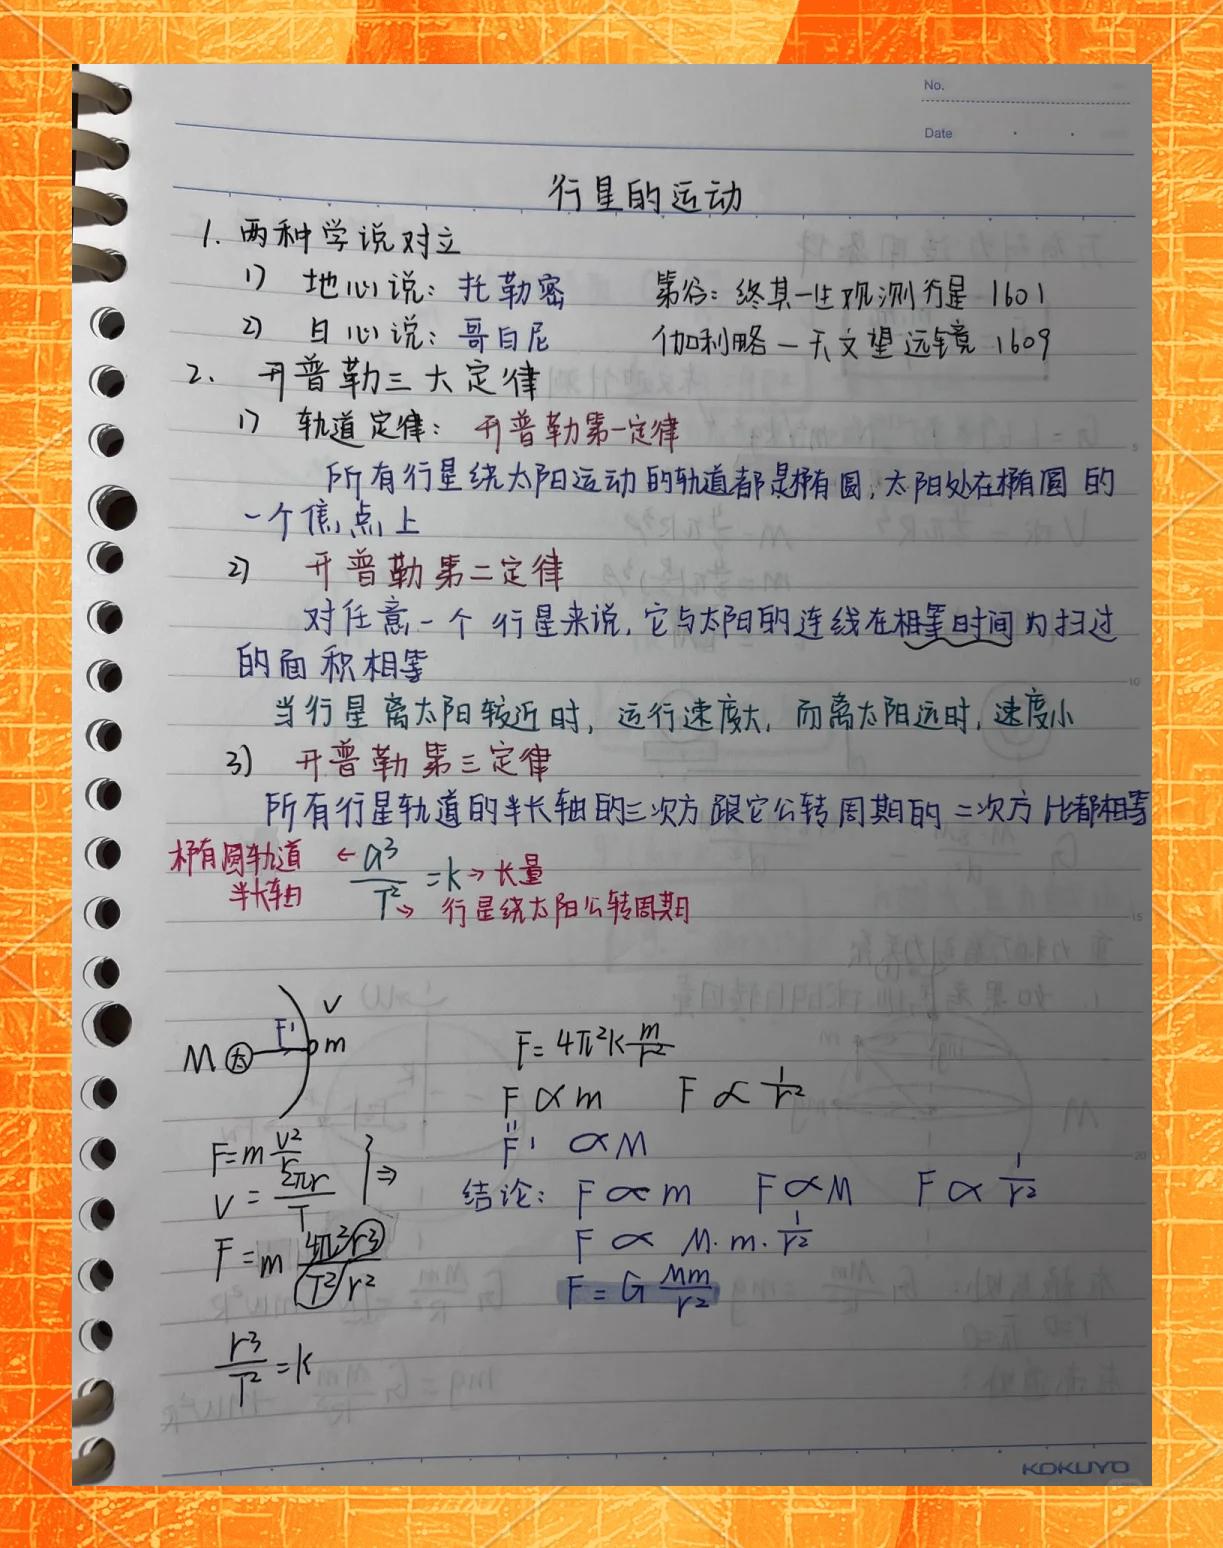 No.
Date
行星的运动
1. 两种学说对立
1) 地心说：托勒密 第谷：终其一生观测行星 1601
2) 日心说：哥白尼 伽利略—天文望远镜 1609
2. 开普勒三大定律
1) 轨道定律：开普勒第一定律
所有行星绕太阳运动的轨道都是椭圆，太阳处在椭圆的
一个焦点上
2) 开普勒第二定律
对任意一个行星来说，它与太阳的连线在相等时间内扫过
的面积相等
当行星离太阳较近时，运行速度大，而离太阳远时，速度小
3) 开普勒第三定律
所有行星轨道的半长轴的三次方跟它公转周期的二次方比都相等
椭圆轨道半长轴 ← a³/T² = k → 长量
→ 行星绕太阳公转周期
M 太 F' v m
F = 4π²k m/r²
F ∝ m F ∝ 1/r²
F = m v²/r
" F' ∝ M
v = 2πr/T } ⇒
结论：F ∝ m F ∝ M F ∝ 1/r²
F = m 4π²r³/T²r²
F ∝ M·m·1/r²
F = G Mm/r²
r³/T² = k
KOKUYO